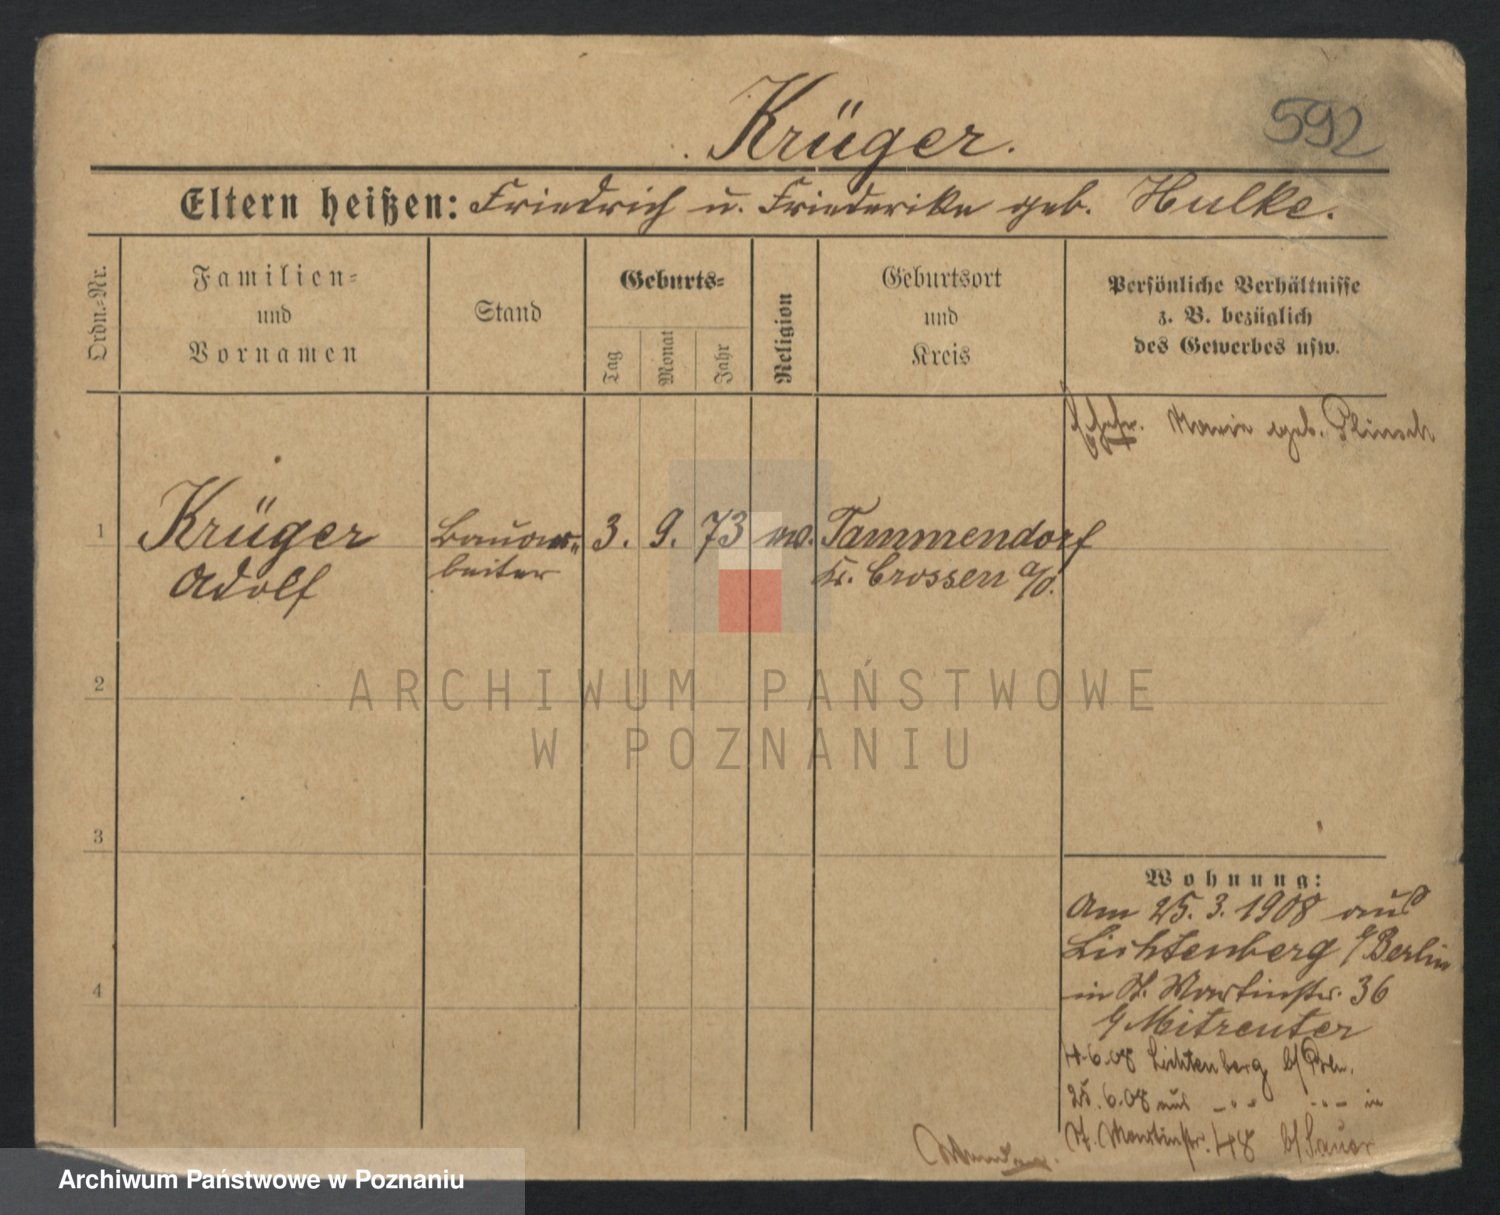 Krüger.
592
Eltern heißen: Friedrich u. Friederike geb. Hulke.
Ordn.-Nr.
Familien-
und
Vornamen
Stand
Geburts-
Tag
Monat
Jahr
Religion
Geburtsort
und
Kreis
Persönliche Verhältnisse
z. B. bezüglich
des Gewerbes usw.
Ehefr. Marie geb. Plinsch
1
Krüger
Adolf
Bauar-
beiter
3. 9. 73
ev.
Tammendorf
Kr. Crossen a/O.
2
3
4
Wohnung:
Am 25. 3. 1908 aus
Lichtenberg b/Berlin
in St. Martinstr. 36
b/Mitreuter
4.6.08 Lichtenberg b/Bln.
25.6.08 aus -"- -"- in
St. Martinstr. 48 b/Sauer
ARCHIWUM PAŃSTWOWE
W POZNANIU
Archiwum Państwowe w Poznaniu